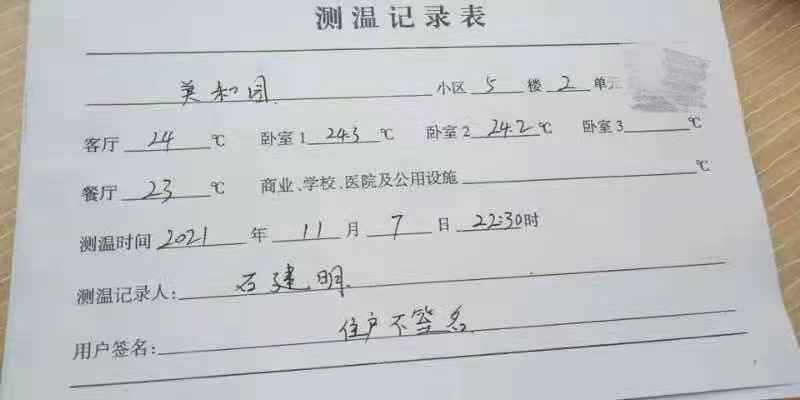 测温记录表
美和园 小区 5 楼 2 单元
客厅 24 ℃ 卧室1 24.3 ℃ 卧室2 24.2 ℃ 卧室3 ℃
餐厅 23 ℃ 商业、学校、医院及公用设施 ℃
测温时间 2021 年 11 月 7 日 22:30时
测温记录人: 石建明
用户签名: 住户不签名